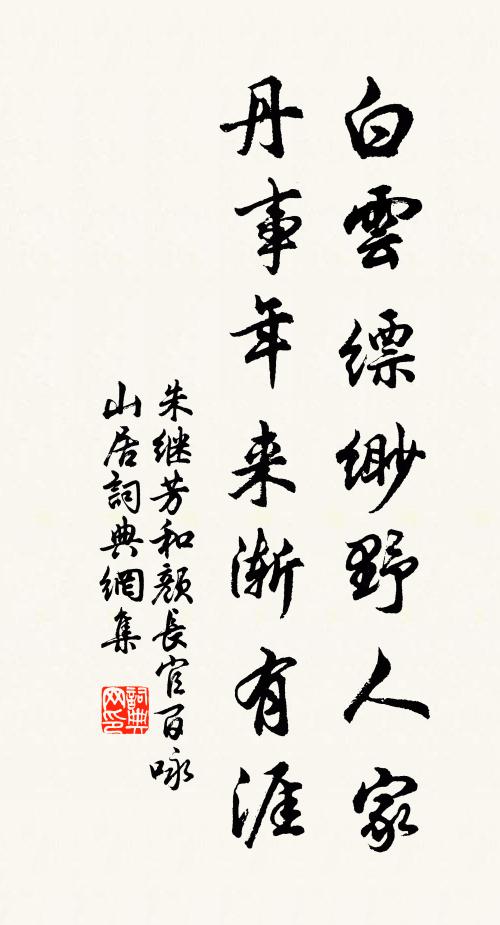 白雲縹緲野人家
丹事年来漸有涯
朱继芳和颜長官百咏
山居詞典網集
詞典
网印